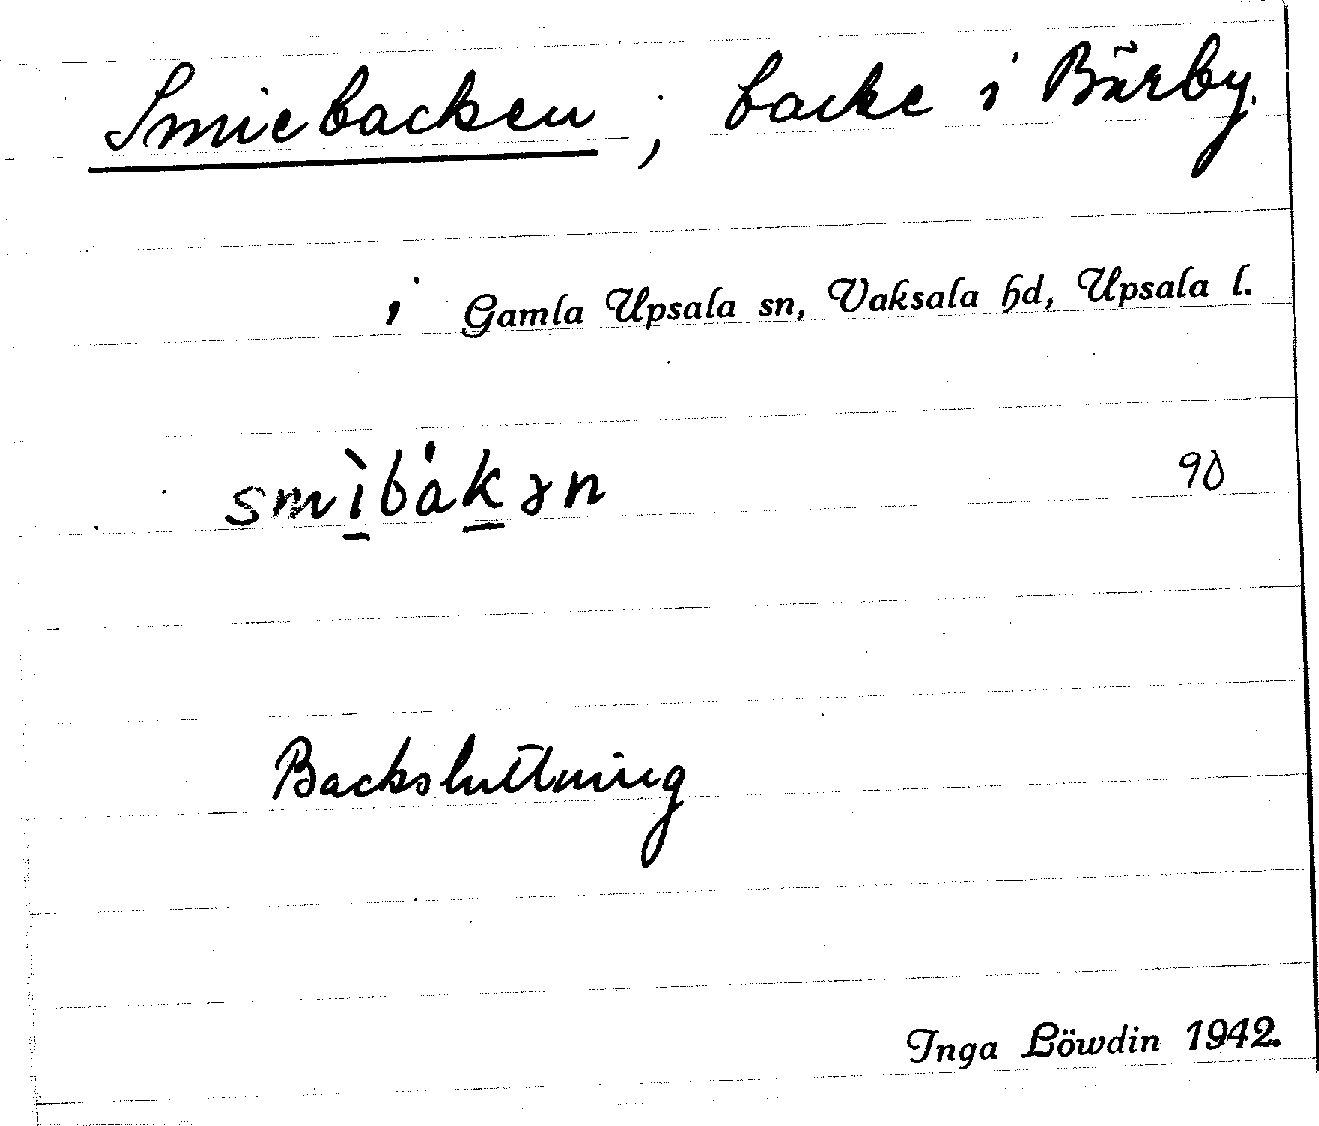 Smiebacken ; backe i Bärby.
i Gamla Upsala sn, Vaksala hd, Upsala l.
smì̱bȧḵən 90
Backsluttning
Inga Löwdin 1942.